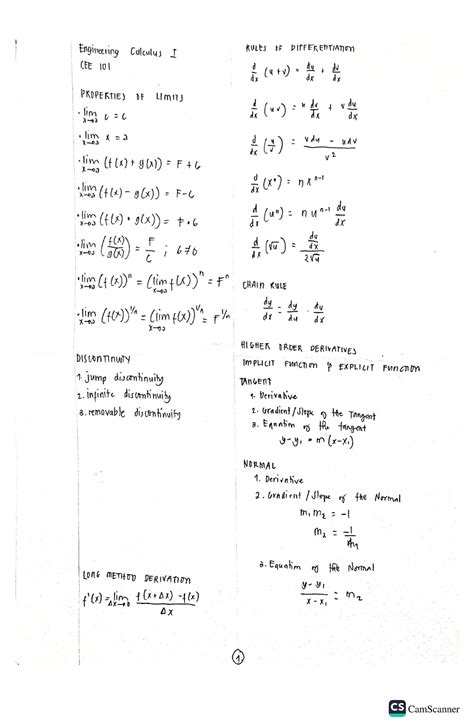 Engineering Calculus I
CEE 101
PROPERTIES OF LIMITS
• lim x→a c = c
• lim x→a x = a
• lim x→a (f(x) + g(x)) = F + G
• lim x→a (f(x) - g(x)) = F - G
• lim x→a (f(x) • g(x)) = F • G
• lim x→a (f(x)/g(x)) = F/G ; G≠0
• lim x→a (f(x))^n = (lim x→a f(x))^n = F^n
• lim x→a (f(x))^1/n = (lim x→a f(x))^1/n = F^1/n
DISCONTINUITY
1. jump discontinuity
2. infinite discontinuity
3. removable discontinuity
LONG METHOD DERIVATION
f'(x) = lim Δx→0 f(x+Δx) - f(x) / Δx
RULES OF DIFFERENTIATION
d/dx (u + v) = du/dx + dv/dx
d/dx (uv) = u dv/dx + v du/dx
d/dx (u/v) = vdu - udv / v^2
d/dx (x^n) = n x^n-1
d/dx (u^n) = n u^n-1 du/dx
d/dx (√u) = du/dx / 2√u
CHAIN RULE
dy/dx = dy/du · du/dx
HIGHER ORDER DERIVATIVES
IMPLICIT FUNCTION & EXPLICIT FUNCTION
TANGENT
1. Derivative
2. Gradient/Slope of the Tangent
3. Equation of the tangent
y-y₁ = m (x-x₁)
NORMAL
1. Derivative
2. Gradient/Slope of the Normal
m₁m₂ = -1
m₂ = -1/m₁
3. Equation of the Normal
y-y₁ / x-x₁ = m₂
1
CS CamScanner